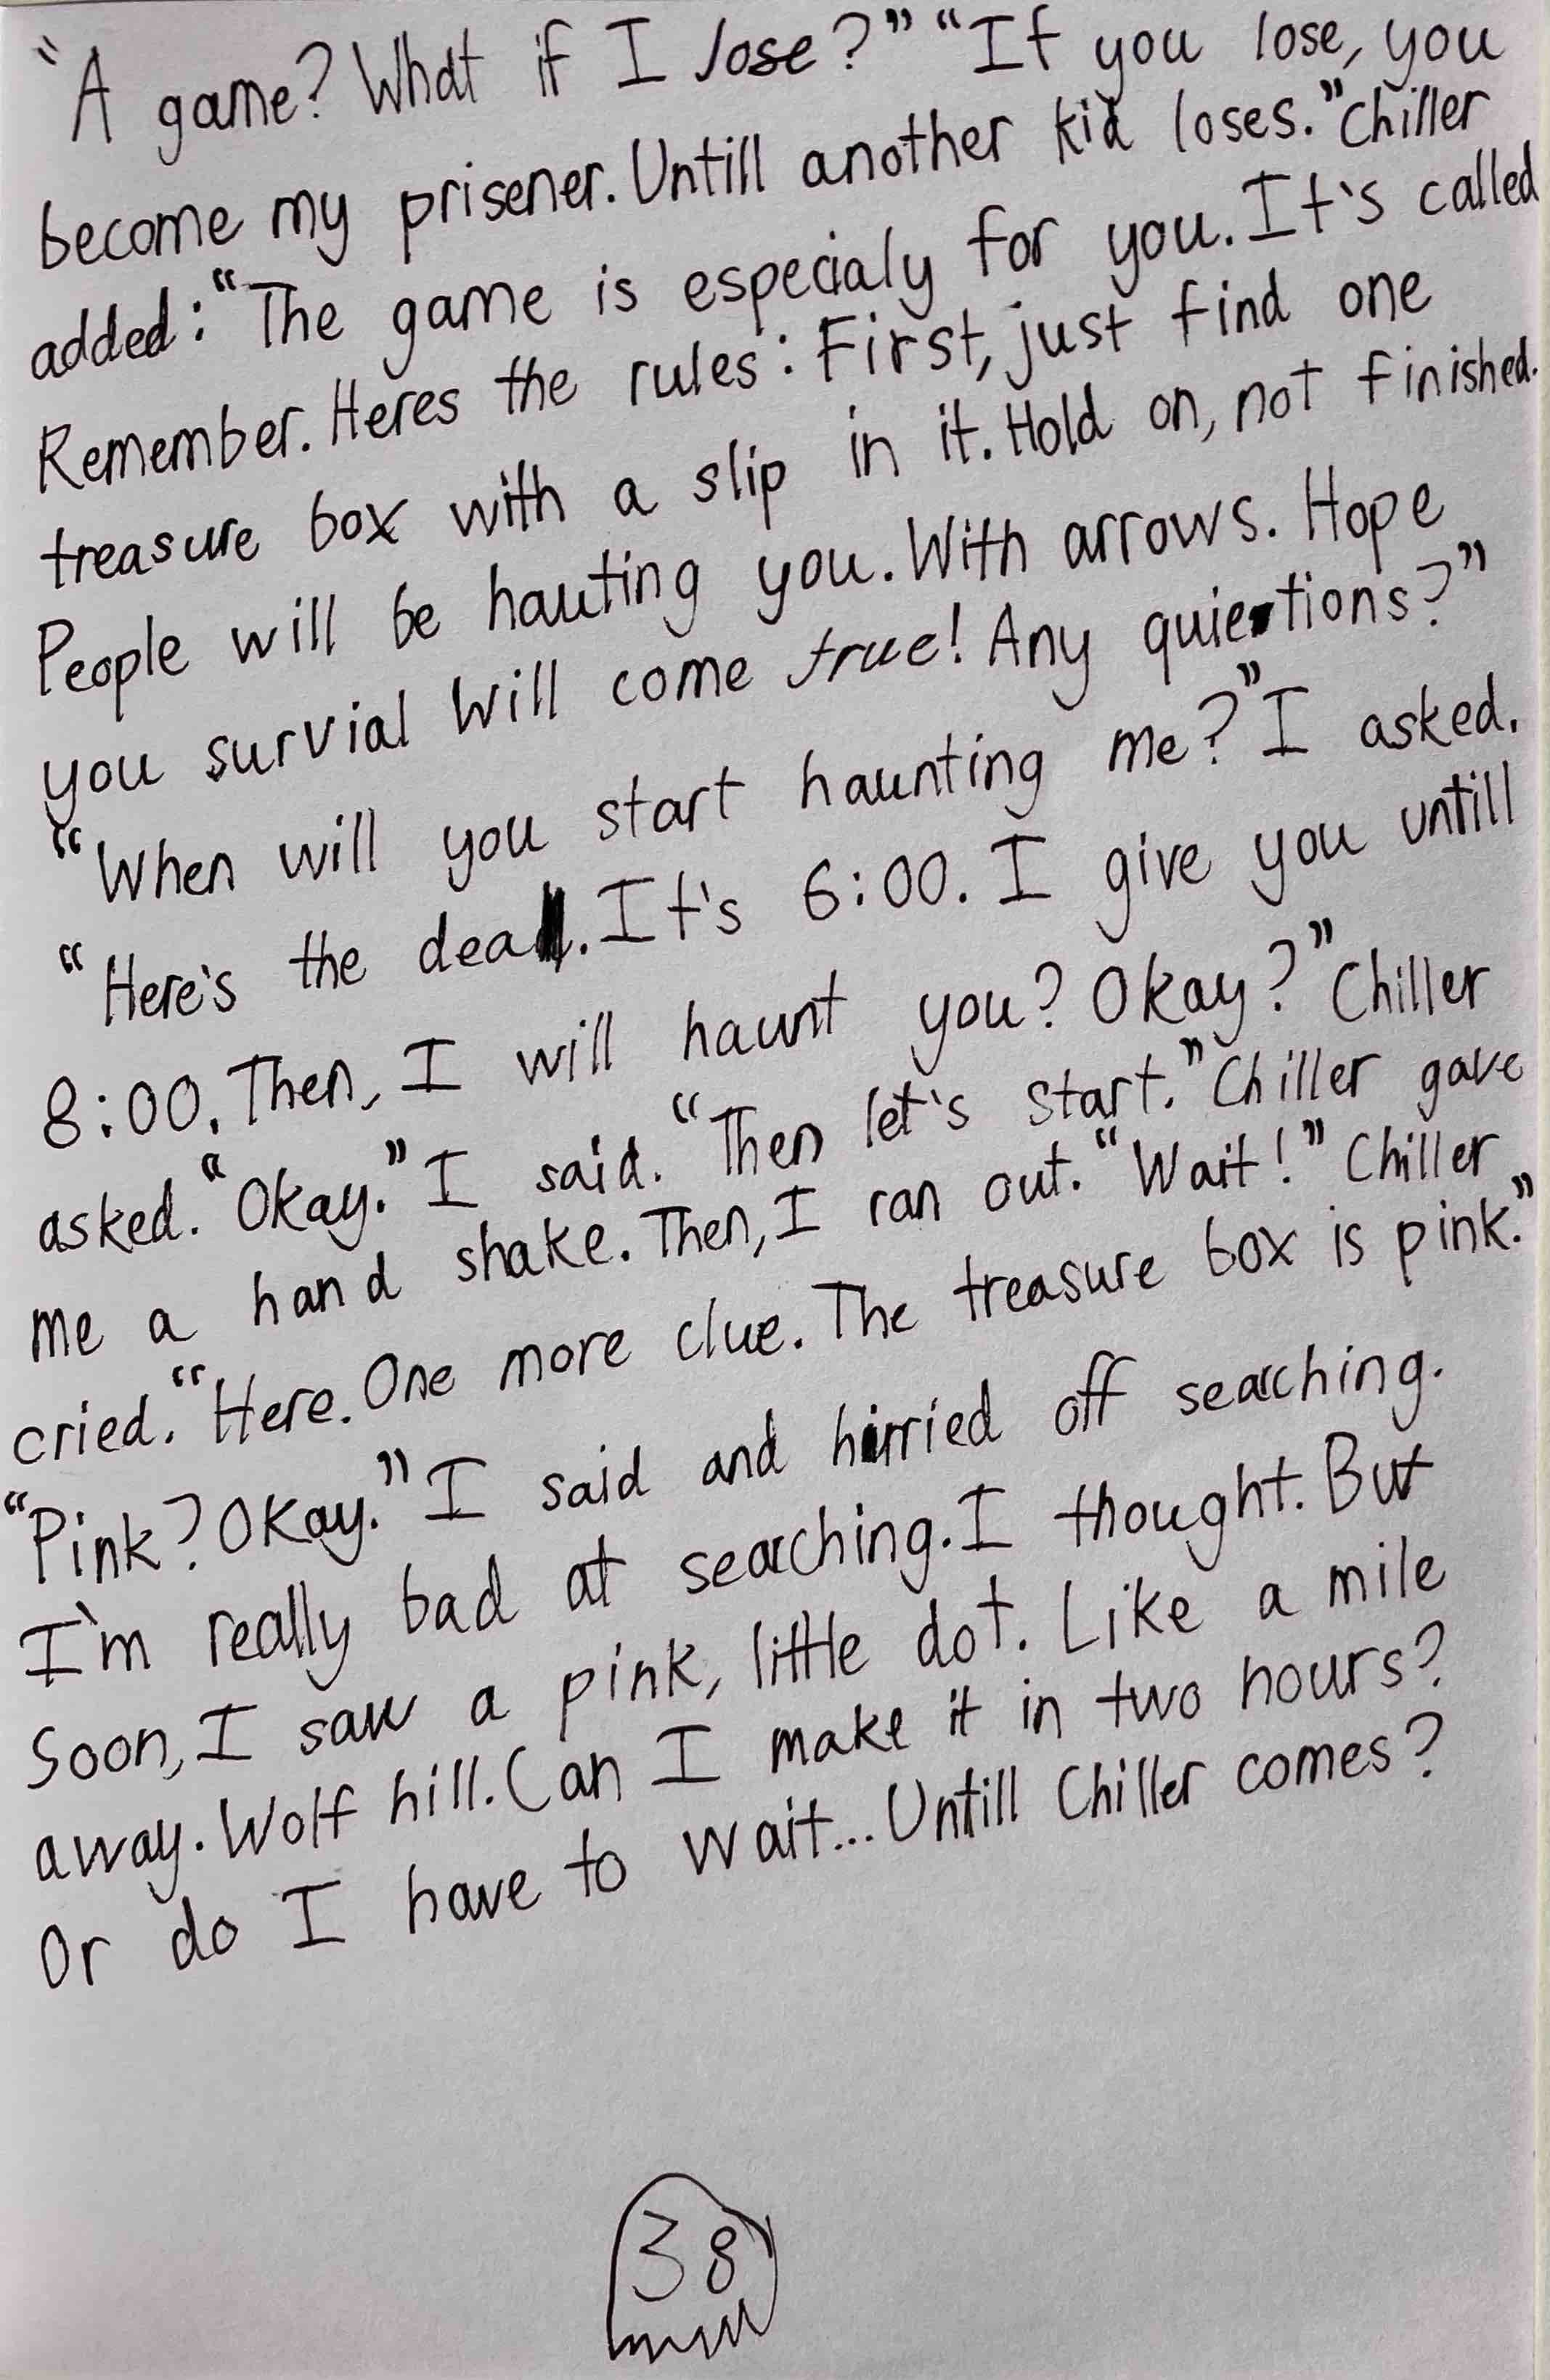 "A game? What if I lose?" "If you lose, you
become my prisener. Untill another kid loses." Chiller
added: "The game is especialy for you. It's called
Remember. Heres the rules: First, just find one
treasure box with a slip in it. Hold on, not finished.
People will be hauting you. With arrows. Hope
you survial will come true! Any quiestions?"
"When will you start haunting me?" I asked.
"Here's the deal. It's 6:00. I give you untill
8:00. Then, I will haunt you? Okay?" Chiller
asked. "Okay." I said. "Then let's start." Chiller gave
me a hand shake. Then, I ran out. "Wait!" Chiller
cried. "Here. One more clue. The treasure box is pink."
"Pink? Okay." I said and hurried off searching.
I'm really bad at searching. I thought. But
Soon, I saw a pink, little dot. Like a mile
away. Wolf hill. Can I make it in two hours?
Or do I have to wait... Untill Chiller comes?
38